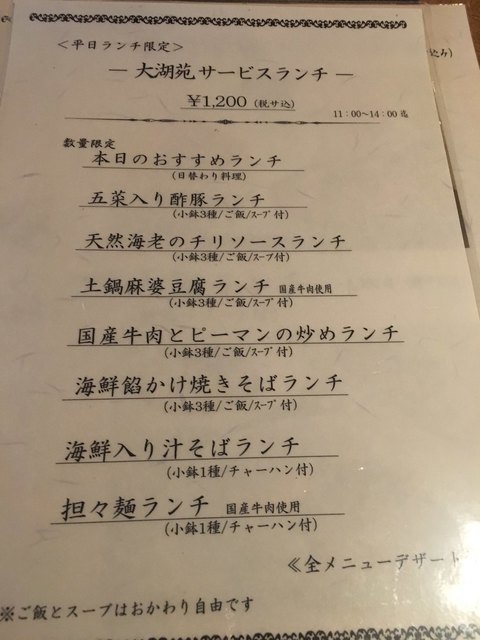 ＜平日ランチ限定＞
― 大湖苑サービスランチ ―
￥1,200（税サ込）
11：00～14：00 迄
数量限定
本日のおすすめランチ
（日替わり料理）
五菜入り酢豚ランチ
（小鉢3種/ご飯/ｽｰﾌﾟ付）
天然海老のチリソースランチ
（小鉢3種/ご飯/ｽｰﾌﾟ付）
土鍋麻婆豆腐ランチ 国産牛肉使用
（小鉢3種/ご飯/ｽｰﾌﾟ付）
国産牛肉とピーマンの炒めランチ
（小鉢3種/ご飯/ｽｰﾌﾟ付）
海鮮餡かけ焼きそばランチ
（小鉢3種/ご飯/ｽｰﾌﾟ付）
海鮮入り汁そばランチ
（小鉢1種/チャーハン付）
担々麺ランチ 国産牛肉使用
（小鉢1種/チャーハン付）
≪全メニューデザート
※ご飯とスープはおかわり自由です
込み)